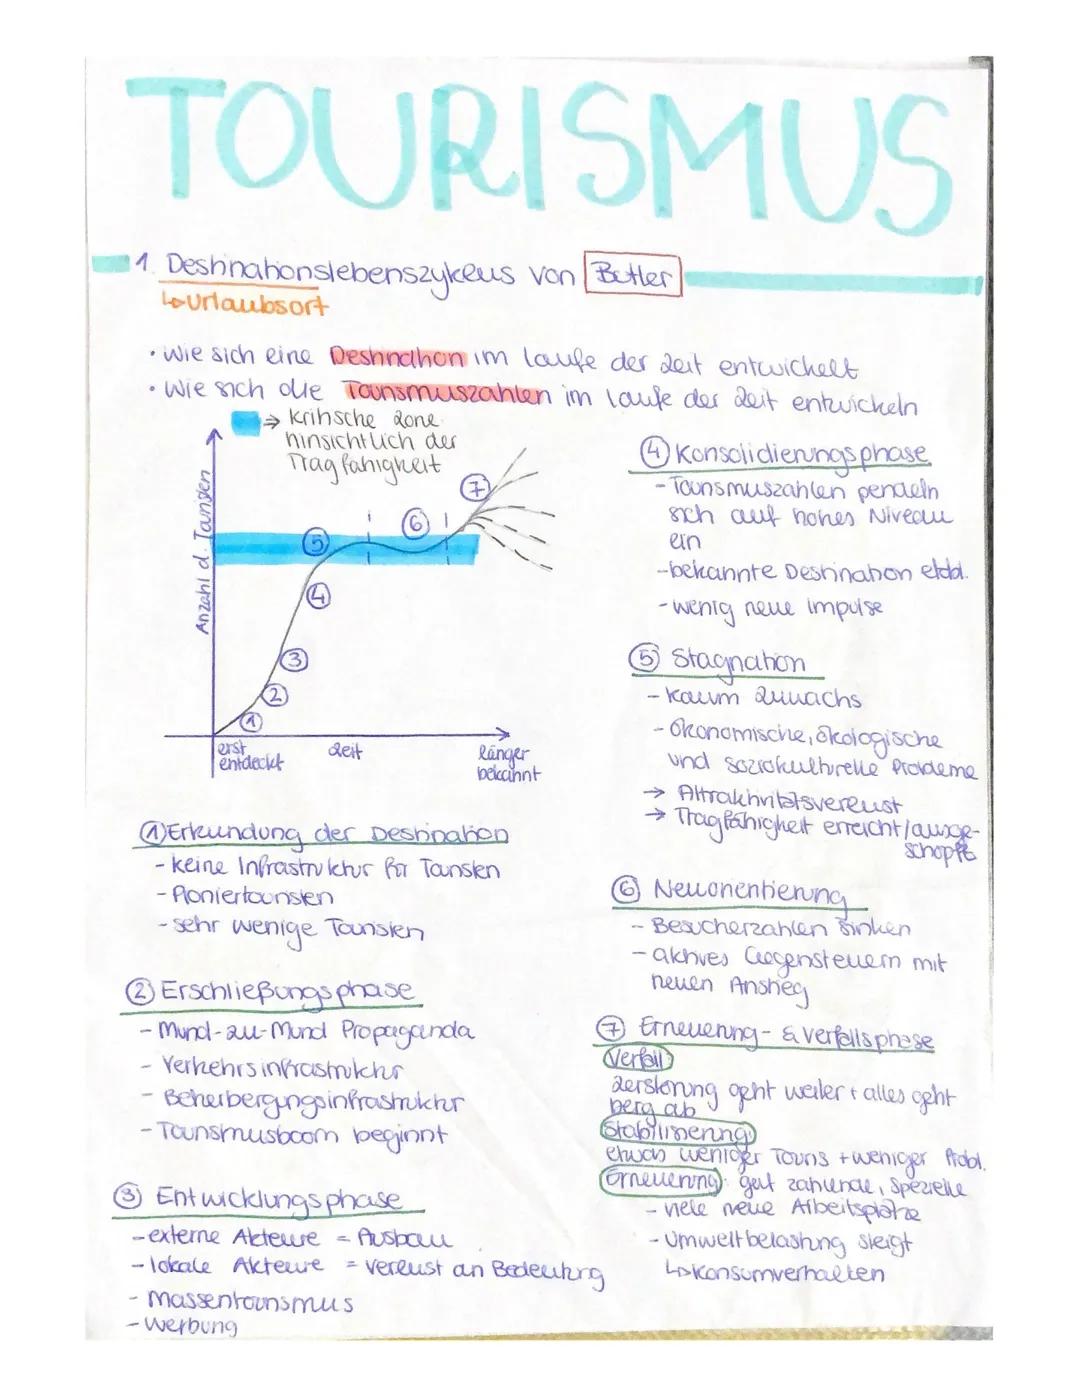 TOURISMUS
1. Destinationslebenszyklus von Butler
↳Urlaubsort
• Wie sich eine Destination im Laufe der Zeit entwickelt
• Wie sich die Tourismuszahlen im Laufe der Zeit entwickeln
⇒ kritische Zone
hinsichtlich der
Tragfähigkeit
Anzahl d. Touristen
7
6
5
4
3
2
1
erst
entdeckt
Zeit
länger
bekannt
① Erkundung der Destination
- keine Infrastruktur für Touristen
- Pioniertouristen
- sehr wenige Touristen
② Erschließungsphase
- Mund-zu-Mund Propaganda
- Verkehrsinfrastruktur
- Beherbergungsinfrastruktur
- Tourismusboom beginnt
③ Entwicklungsphase
- externe Akteure = Ausbau
- lokale Akteure = Verlust an Bedeutung
- Massentourismus
- Werbung
④ Konsolidierungsphase
- Tourismuszahlen pendeln
sich auf hohes Niveau
ein
- bekannte Destination etabl.
- wenig neue Impulse
⑤ Stagnation
- kaum Zuwachs
- Ökonomische, ökologische
und soziokulturelle Probleme
→ Attraktivitätsverlust
→ Tragfähigkeit erreicht/ausge-
schöpft
⑥ Neuorientierung
- Besucherzahlen sinken
- aktives Gegensteuern mit
neuen Anstieg
⑦ Erneuerung- & Verfallsphase
Verfall
Zerstörung geht weiter + alles geht
berg ab
Stabilisierung
etwas weniger Touris + weniger Probl.
Erneuerung: gut zahlende, spezielle
- viele neue Arbeitsplätze
- Umweltbelastung steigt
↳ Konsumverhalten